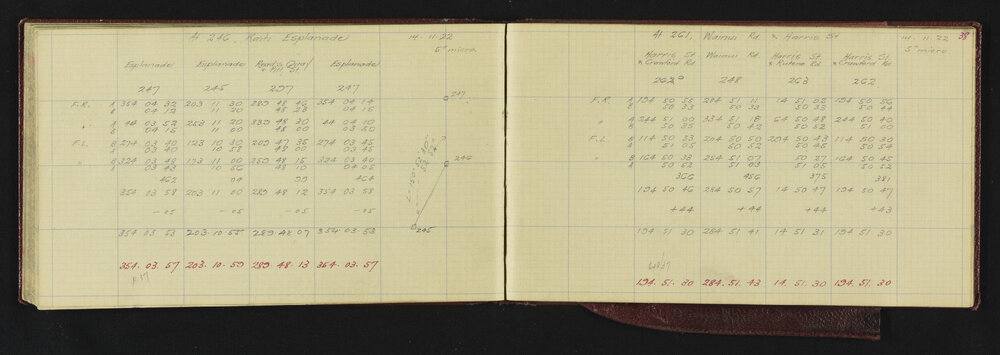 At 246 Kaiti Esplanade 14.11.22
5" micro
Esplanade Esplanade Reads Quay Esplanade
& Hill St
247 245 297 247
F.R. A 354 04 32 203 11 30 289 48 46 354 04 14
B 04 12 11 20 48 23 04 15
" A 44 03 52 253 11 20 339 48 30 44 04 10
B 04 15 11 00 48 00 03 50
F.L. B 274 03 40 123 10 30 209 47 35 274 03 45
A 03 40 10 58 48 00 03 45
" B 324 03 40 173 11 00 259 48 15 324 03 40
A 03 43 10 56 48 10 04 05
462 94 99 464
354 03 58 203 11 00 289 48 12 354 03 58
-05 -05 -05 -05
354 03 53 203.10.55 289.48 07 354.03.53
354.03.57 203.10.59 289.48.13 354.03.57
247
246
245
38
At 261, Waimui Rd. & Harris St 14.11.22
5" micro
Harris St Waimui Rd. Harris St Harris St
& Crawford Rd & Rutene Rd & Crawford Rd
262 248 263 262
F.R. A 194 50 55 284 51 11 14 51 05 194 50 56
B 50 33 50 33 50 33 50 44
" A 244 51 00 334 51 18 64 50 48 244 50 40
B 50 35 50 42 50 52 51 00
F.L. B 114 50 33 204 50 50 294 50 43 114 50 30
A 51 05 50 52 50 45 50 54
" B 164 50 33 254 51 07 50 27 164 50 45
A 50 52 51 03 51 05 50 52
366 456 375 381
194 50 46 284 50 57 14 50 47 194 50 47
+44 +44 +44 +43
194 51 30 284 51 41 14 51 31 194 51 30
194.51.30 284.51.43 14.51.30 194.51.30